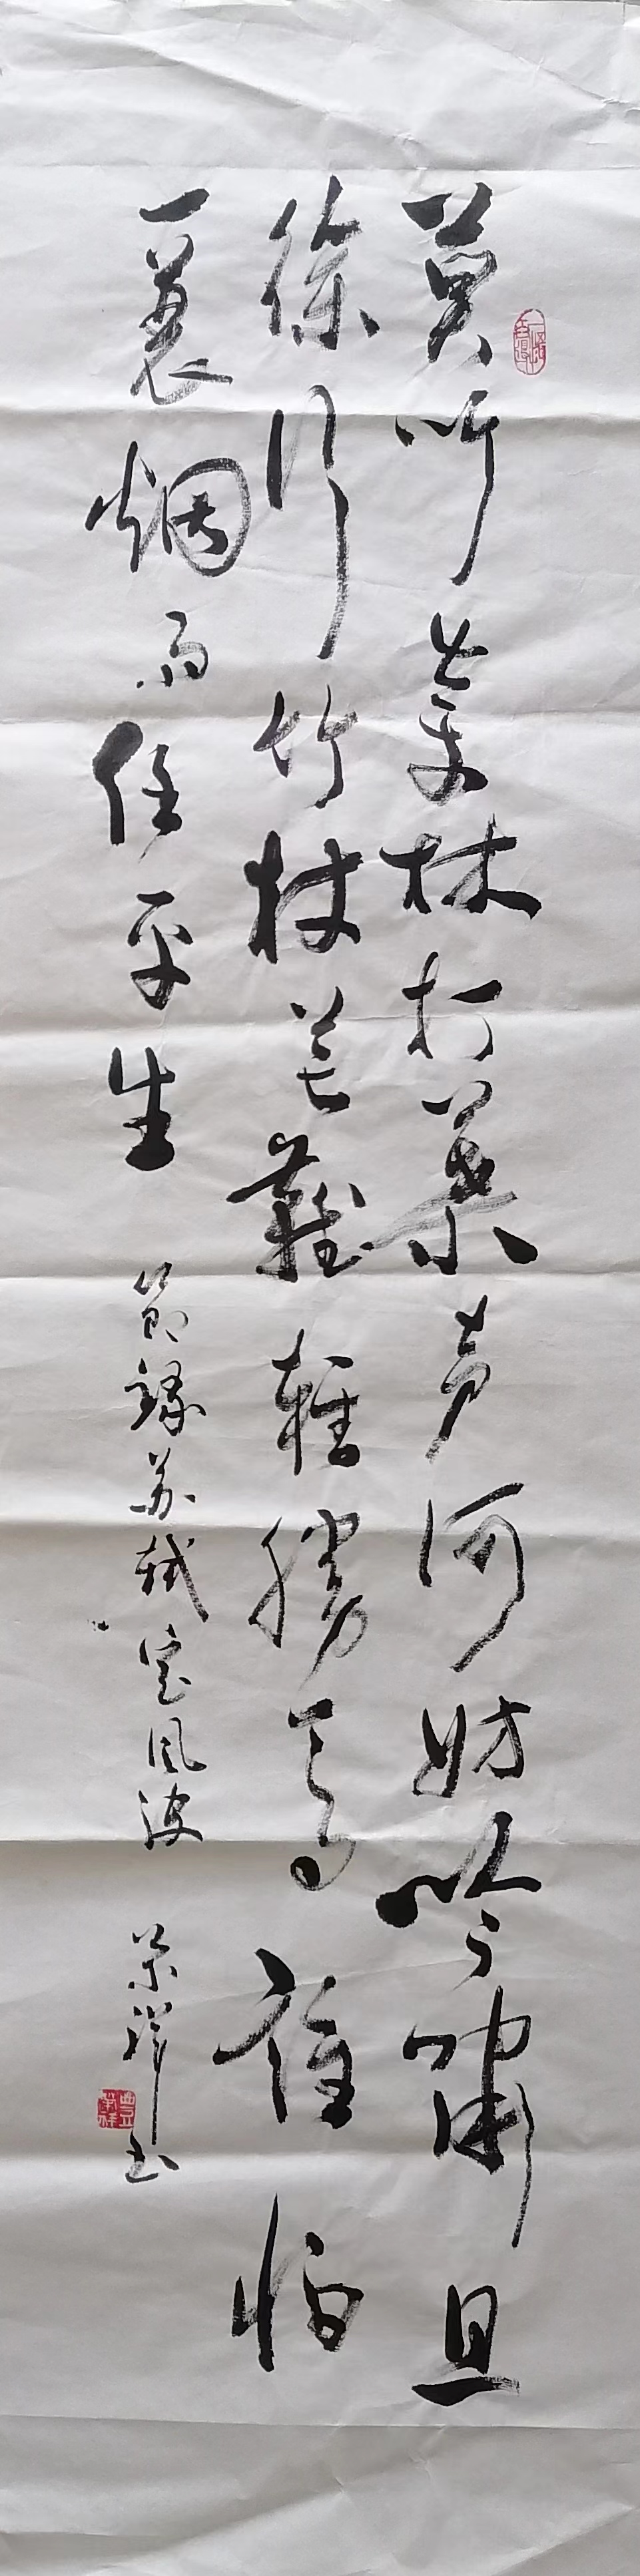 莫听穿林打葉声何妨吟嘯且
徐行竹杖芒鞋輕勝馬谁怕
一蓑烟雨任平生 節録苏轼定风波 荣祥书